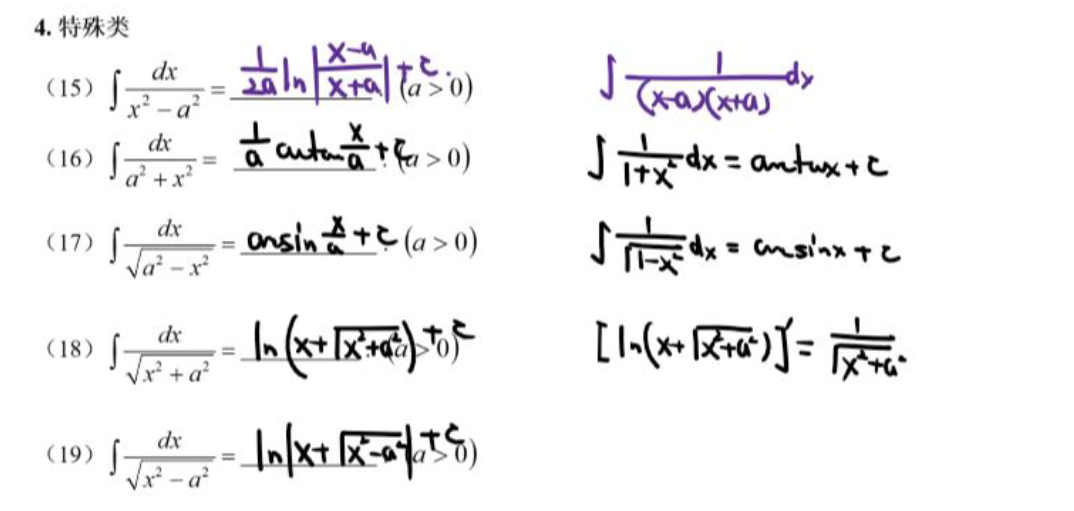 4. 特殊类
（15）∫ dx/(x² − a²) = 1/(2a) ln|(x−a)/(x+a)| + c. (a > 0) ∫ 1/((x−a)(x+a)) dx
（16）∫ dx/(a² + x²) = 1/a arctan x/a + c (a > 0) ∫ 1/(1+x²) dx = arctanx + c
（17）∫ dx/√(a² − x²) = arcsin x/a + c (a > 0) ∫ 1/√(1−x²) dx = arcsinx + c
（18）∫ dx/√(x² + a²) = ln(x+√(x²+a²)) + c (a > 0) [ln(x+√(x²+a²))]' = 1/√(x²+a²)
（19）∫ dx/√(x² − a²) = ln|x+√(x²−a²)| + c (a > 0)